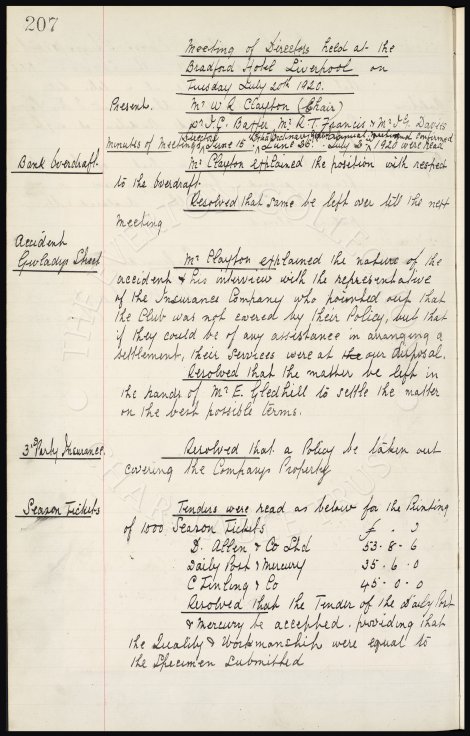 207
Meeting of Directors held at the
Bradford Hotel Liverpool on
Tuesday July 20th 1920.
Present. Mr W R Clayton (Chair)
Dr J.C. Baxter Mr R.T. Francis & Mr J.G. Davies
Minutes of Meetings Directors June 15 June 25 Annual July 2 1920 were read and confirmed
Bank Overdraft. Mr Clayton explained the position with respect
to the Overdraft
Resolved that same be left over till the next
meeting
Accident
Gwladys Street
Mr Clayton explained the nature of the
accident & his interview with the representative
of the Insurance Company who pointed out that
the Club was not covered by their Policy, but that
if they could be of any assistance in arranging a
settlement, their services were at the our disposal.
Resolved that the matter be left in
the hands of Mr E. Gledhill to settle the matter
on the best possible terms.
3rd Party Insurance. Resolved that a Policy be taken out
covering the Companys Property
Season Tickets Tenders were read as below for the Printing
of 1000 Season Tickets £ . s
D. Allen & Co Ltd 53 - 8 - 6
Daily Post & Mercury 35 - 6 - 0
C Tinling & Co 45 - 0 - 0
Resolved that the Tender of the Daily Post
& Mercury be accepted, providing that
the Quality & Workmanship were equal to
the Specimen submitted